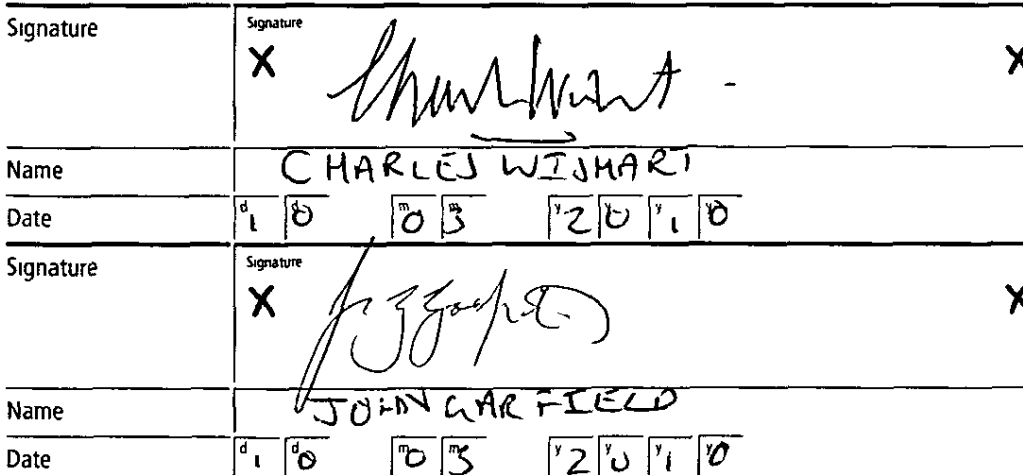 Signature Signature
X X
Name CHARLES WISMART
Date d1 d0 m0 m3 y2 y0 y1 y0
Signature Signature
X X
Name JOHN GARFIELD
Date d1 d0 m0 m3 y2 y0 y1 y0